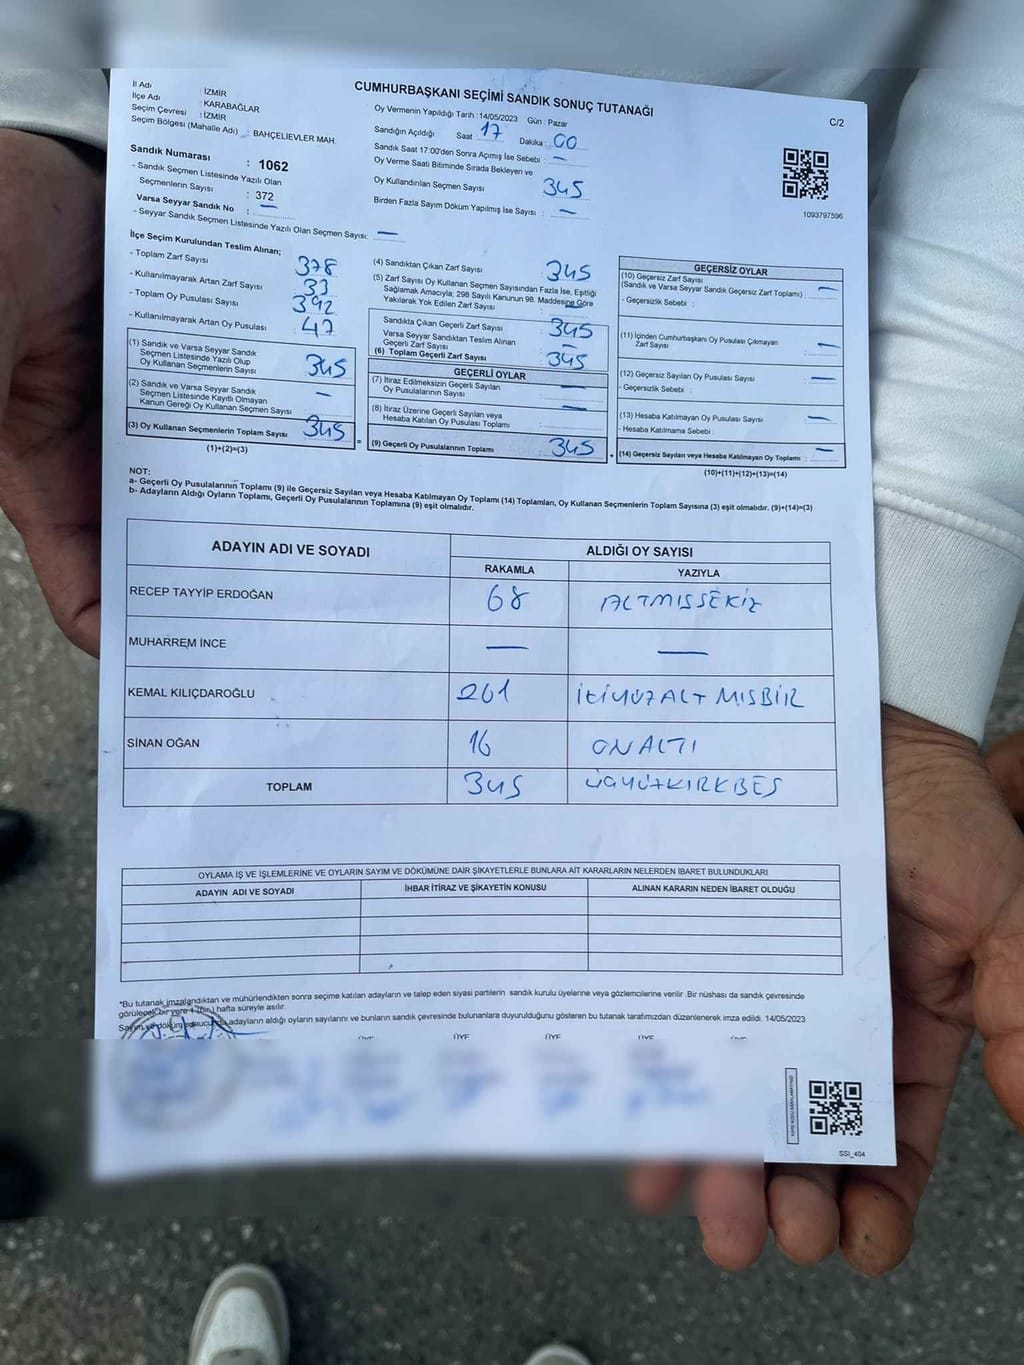 CUMHURBAŞKANI SEÇİMİ SANDIK SONUÇ TUTANAĞI
C/2
İl Adı : İZMİR
İlçe Adı : KARABAĞLAR
Seçim Çevresi : İZMİR
Seçim Bölgesi (Mahalle Adı) : BAHÇELİEVLER MAH.
Sandık Numarası : 1062
- Sandık Seçmen Listesinde Yazılı Olan
Seçmenlerin Sayısı : 372
Varsa Seyyar Sandık No : —
- Seyyar Sandık Seçmen Listesinde Yazılı Olan Seçmen Sayısı: —
Oy Vermenin Yapıldığı Tarih : 14/05/2023 Gün : Pazar
Sandığın Açıldığı Saat : 17 Dakika : 00
Sandık Saat 17:00'den Sonra Açımış İse Sebebi : —
Oy Verme Saati Bitiminde Sırada Bekleyen ve
Oy Kullandırılan Seçmen Sayısı 345
Birden Fazla Sayım Döküm Yapılmış İse Sayısı : —
1093797596
İlçe Seçim Kurulundan Teslim Alınan;
- Toplam Zarf Sayısı : 378
- Kullanılmayarak Artan Zarf Sayısı : 33
- Toplam Oy Pusulası Sayısı : 392
- Kullanılmayarak Artan Oy Pusulası : 47
(1) Sandık ve Varsa Seyyar Sandık
Seçmen Listesinde Yazılı Olup
Oy Kullanan Seçmenlerin Sayısı : 345
(2) Sandık ve Varsa Seyyar Sandık
Seçmen Listesinde Kayıtlı Olmayan
Kanun Gereği Oy Kullanan Seçmen Sayısı : —
(3) Oy Kullanan Seçmenlerin Toplam Sayısı : 345
(1)+(2)=(3)
=
(4) Sandıktan Çıkan Zarf Sayısı : 345
(5) Zarf Sayısı Oy Kullanan Seçmen Sayısından Fazla İse, Eşitliği
Sağlamak Amacıyla; 298 Sayılı Kanunun 98. Maddesine Göre
Yakılarak Yok Edilen Zarf Sayısı : —
Sandıkta Çıkan Geçerli Zarf Sayısı : 345
Varsa Seyyar Sandıktan Teslim Alınan
Geçerli Zarf Sayısı : —
(6) Toplam Geçerli Zarf Sayısı : 345
GEÇERLİ OYLAR
(7) İtiraz Edilmeksizin Geçerli Sayılan
Oy Pusulalarının Sayısı : —
(8) İtiraz Üzerine Geçerli Sayılan veya
Hesaba Katılan Oy Pusulası Toplamı : —
(9) Geçerli Oy Pusulalarının Toplamı : 345
+
GEÇERSİZ OYLAR
(10) Geçersiz Zarf Sayısı
(Sandık ve Varsa Seyyar Sandık Geçersiz Zarf Toplamı) : —
- Geçersizlik Sebebi :
(11) İçinden Cumhurbaşkanı Oy Pusulası Çıkmayan
Zarf Sayısı : —
(12) Geçersiz Sayılan Oy Pusulası Sayısı : —
- Geçersizlik Sebebi :
(13) Hesaba Katılmayan Oy Pusulası Sayısı : —
- Hesaba Katılmama Sebebi :
(14) Geçersiz Sayılan veya Hesaba Katılmayan Oy Toplamı : —
(10)+(11)+(12)+(13)=(14)
NOT:
a- Geçerli Oy Pusulasının Toplamı (9) ile Geçersiz Sayılan veya Hesaba Katılmayan Oy Toplamı (14) Toplamları, Oy Kullanan Seçmenlerin Toplam Sayısına (3) eşit olmalıdır. (9)+(14)=(3)
b- Adayların Aldığı Oyların Toplamı, Geçerli Oy Pusulalarının Toplamına (9) eşit olmalıdır.
ADAYIN ADI VE SOYADI ALDIĞI OY SAYISI
RAKAMLA YAZIYLA
RECEP TAYYİP ERDOĞAN 68 ALTMIŞSEKİZ
MUHARREM İNCE — —
KEMAL KILIÇDAROĞLU 261 İKİYÜZALTMIŞBİR
SİNAN OĞAN 16 ONALTI
TOPLAM 345 ÜÇYÜZKIRKBEŞ
OYLAMA İŞ VE İŞLEMLERİNE VE OYLARIN SAYIM VE DÖKÜMÜNE DAİR ŞİKAYETLERLE BUNLARA AİT KARARLARIN NELERDEN İBARET BULUNDUKLARI
ADAYIN ADI VE SOYADI İHBAR İTİRAZ VE ŞİKAYETİN KONUSU ALINAN KARARIN NEDEN İBARET OLDUĞU
*Bu tutanak imzalandıktan ve mühürlendikten sonra seçime katılan adayların ve talep eden siyasi partilerin sandık kurulu üyelerine veya gözlemcilerine verilir .Bir nüshası da sandık çevresinde
görülecek bir yere 1 (bir) hafta süreyle asılır.
Sayım ve döküm sonucunda adayların aldığı oyların sayılarını ve bunların sandık çevresinde bulunanlara duyurulduğunu gösteren bu tutanak tarafımızdan düzenlenerek imza edildi. 14/05/2023
ÜYE ÜYE ÜYE ÜYE ÜYE
SSI_404